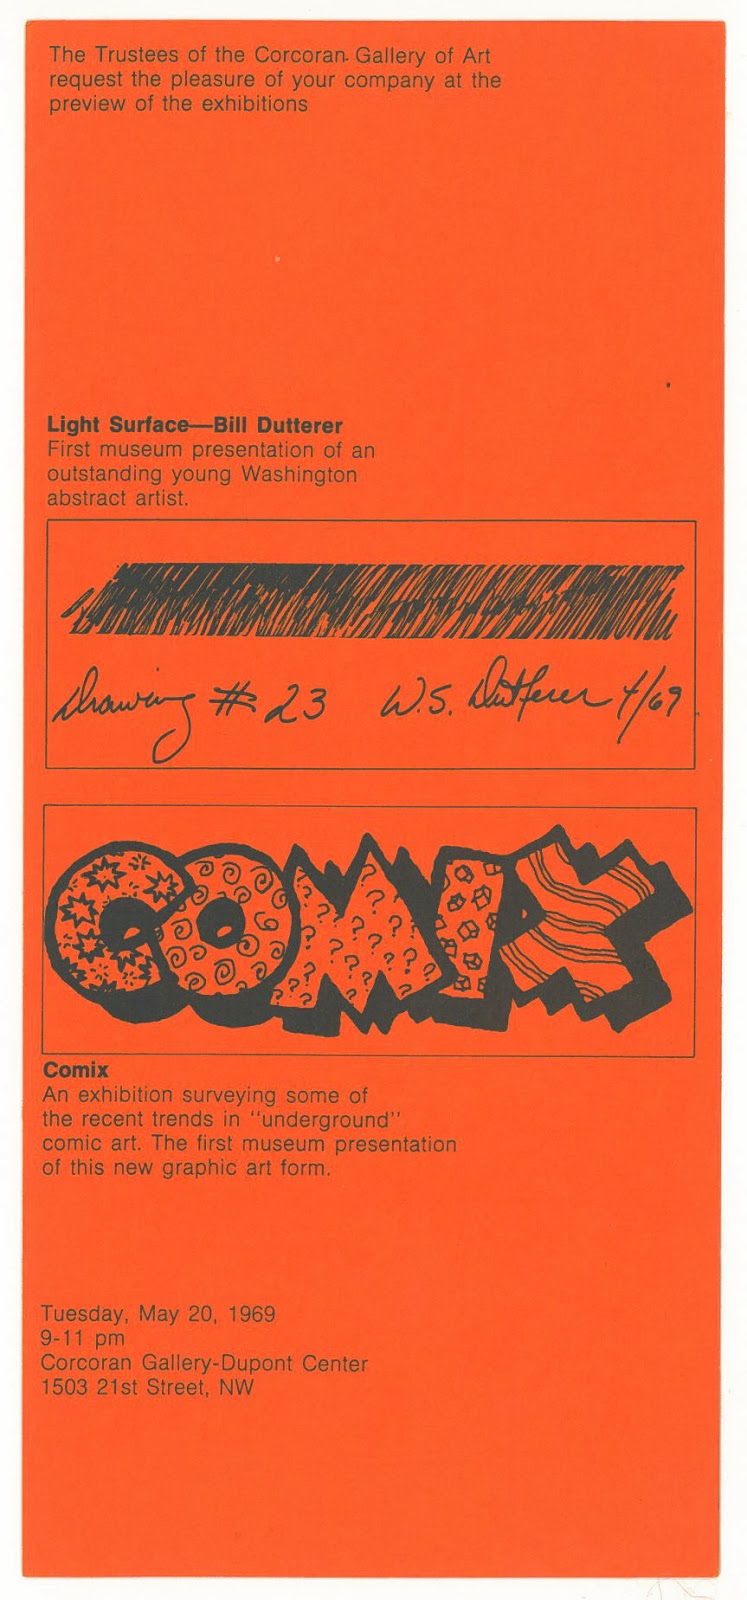 The Trustees of the Corcoran Gallery of Art
request the pleasure of your company at the
preview of the exhibitions
Light Surface—Bill Dutterer
First museum presentation of an
outstanding young Washington
abstract artist.
Drawing # 23 W.S. Dutterer 4/69
COMIX
Comix
An exhibition surveying some of
the recent trends in "underground"
comic art. The first museum presentation
of this new graphic art form.
Tuesday, May 20, 1969
9-11 pm
Corcoran Gallery-Dupont Center
1503 21st Street, NW